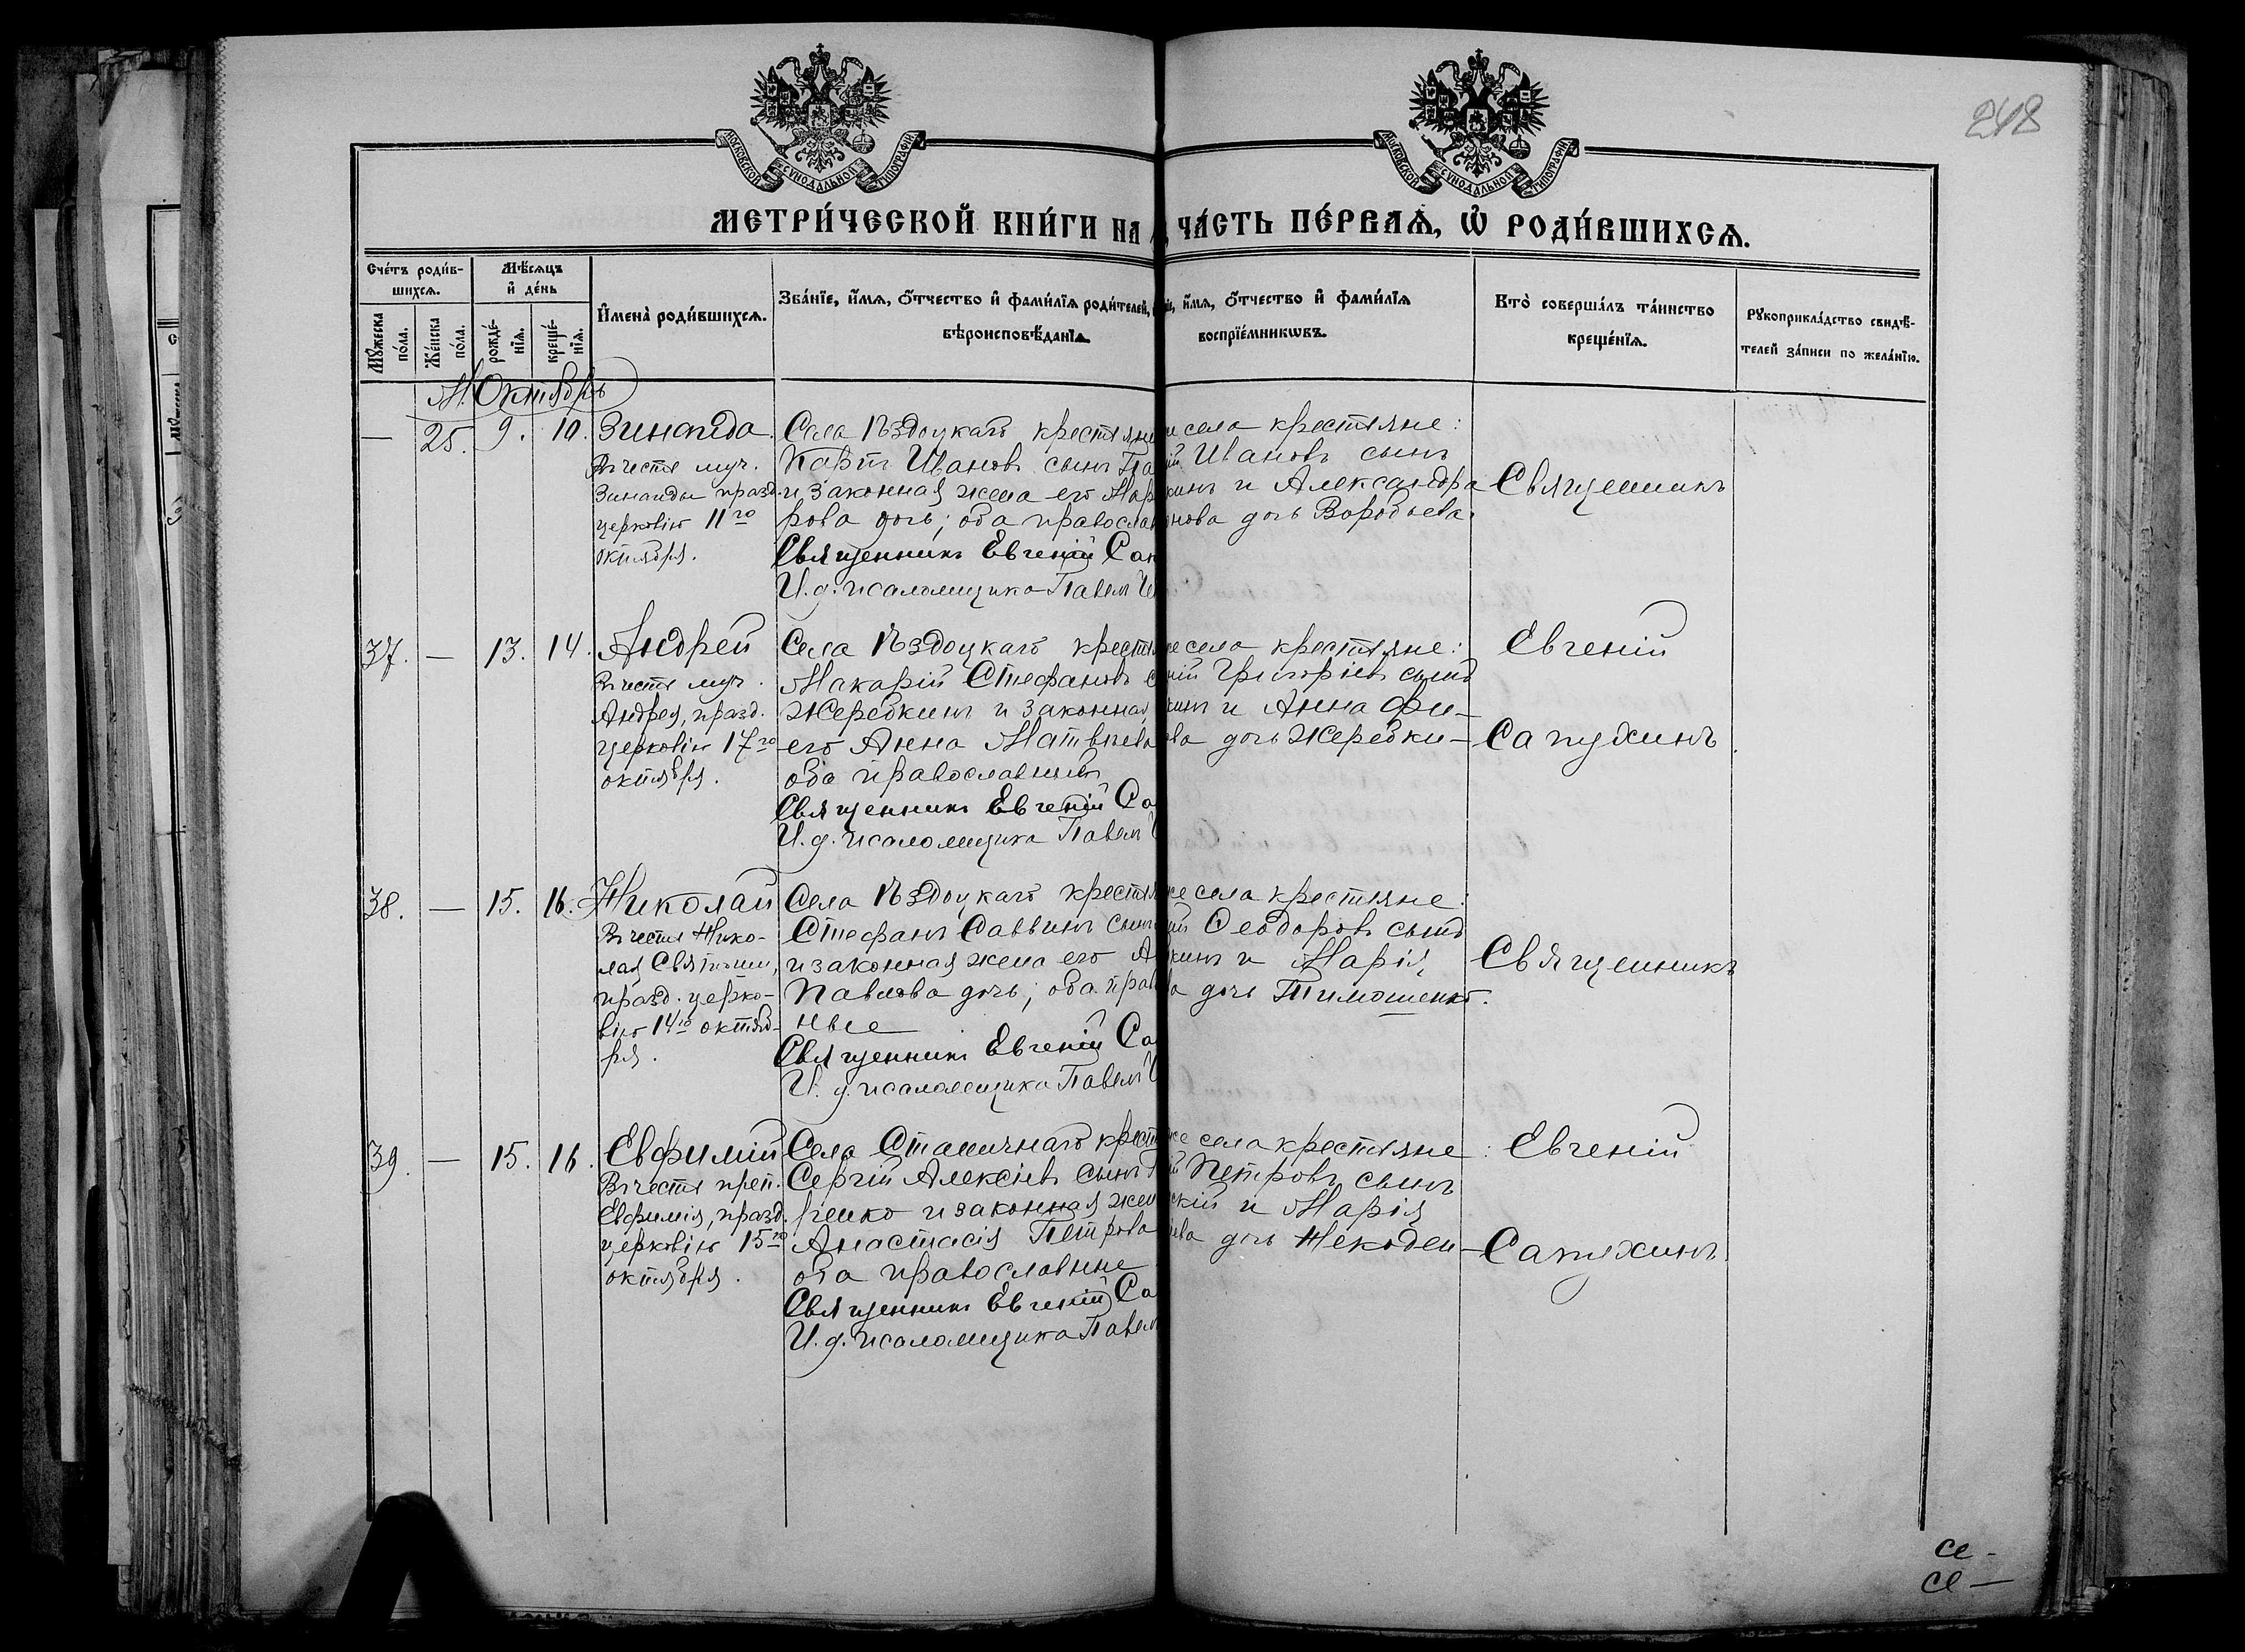 218
МОСКОВСКОЙ СѴНОДАЛЬНОЙ ТИПОГРАФІИ
МОСКОВСКОЙ СѴНОДАЛЬНОЙ ТИПОГРАФІИ
МЕТРИ́ЧЕСКОЙ КНИ́ГИ НА
ЧА́СТЬ ПЕ́РВАѦ, Ѽ РОДИ́ВШИХСѦ.
Сче́тъ роди́в-
шихсѧ.
Мꙋ́жеска
по́ла.
Же́нска
по́ла.
Мѣ́сѧцъ
и҆ де́нь
рожде́-
нїѧ.
креще́-
нїѧ.
И҆мена̀ роди́вшихсѧ.
Зва́нїе, и҆́мѧ, о҆́тчество и҆ фами́лїѧ роди́телей,
вѣроисповѣ́данїѧ.
и҆́мѧ, о҆́тчество и҆ фами́лїѧ
воспрїе́мникѡвъ.
Кто̀ соверша́лъ та́инство
креще́нїѧ.
Рꙋкоприкла́дство свидѣ́-
телей за́писи по жела́нїю.
М. Октябрь
— 25. 9. 10. Зинаида
Въ честь муч.
Зинаиды празд.
церковію 11го
октября.
Села Ѣздоцкаго крестьяне
Карпъ Ивановъ сынъ
и законная жена его Мар
рова дочь; оба правосла
Священникъ Евгеній Са
И. д. псаломщика Павелъ
села крестьяне:
Ивановъ сынъ
кинъ и Александра
нова дочь Воробьева.
Священникъ
37. — 13. 14. Андрей
Въ честь муч.
Андрея, празд.
церковію 17го
октября.
Села Ѣздоцкаго кресть
Макарій Стефановъ с
Жеребкинъ и законная
его Анна Матвѣева
оба православные
Священникъ Евгеній Са
И. д. псаломщика Павелъ
же села крестьяне:
ній Григоріевъ сынъ
кинъ и Анна Фи-
ва дочь Жеребки-
Евгеній
Сапухинъ.
38. — 15. 16. Николай
Въ честь Нико-
лая Святоши,
празд. церко-
вію 14го октяб-
ря.
Села Ѣздоцкаго кресть
Стефанъ Саввинъ сынъ
и законная жена его А
Павлова дочь; оба прав
ные
Священникъ Евгеній Са
И. д. псаломщика Павелъ
же села крестьяне:
ій Ѳеодоровъ сынъ
кинъ и Марія
а дочь Тимошенко.
Священникъ
39. — 15. 16. Евфимій
Въ честь преп.
Евфимія, празд.
церковію 15го
октября.
Села Станичнаго крест
Сергій Алексіевъ сынъ
ренко и законная жен
Анастасія Петрова
оба православные
Священникъ Евгеній Са
И. д. псаломщика Павел
же села крестьяне:
й Петровъ сынъ
скій и Марія
ева дочь Некоден-
Евгеній
Сапухинъ.
се-
се-